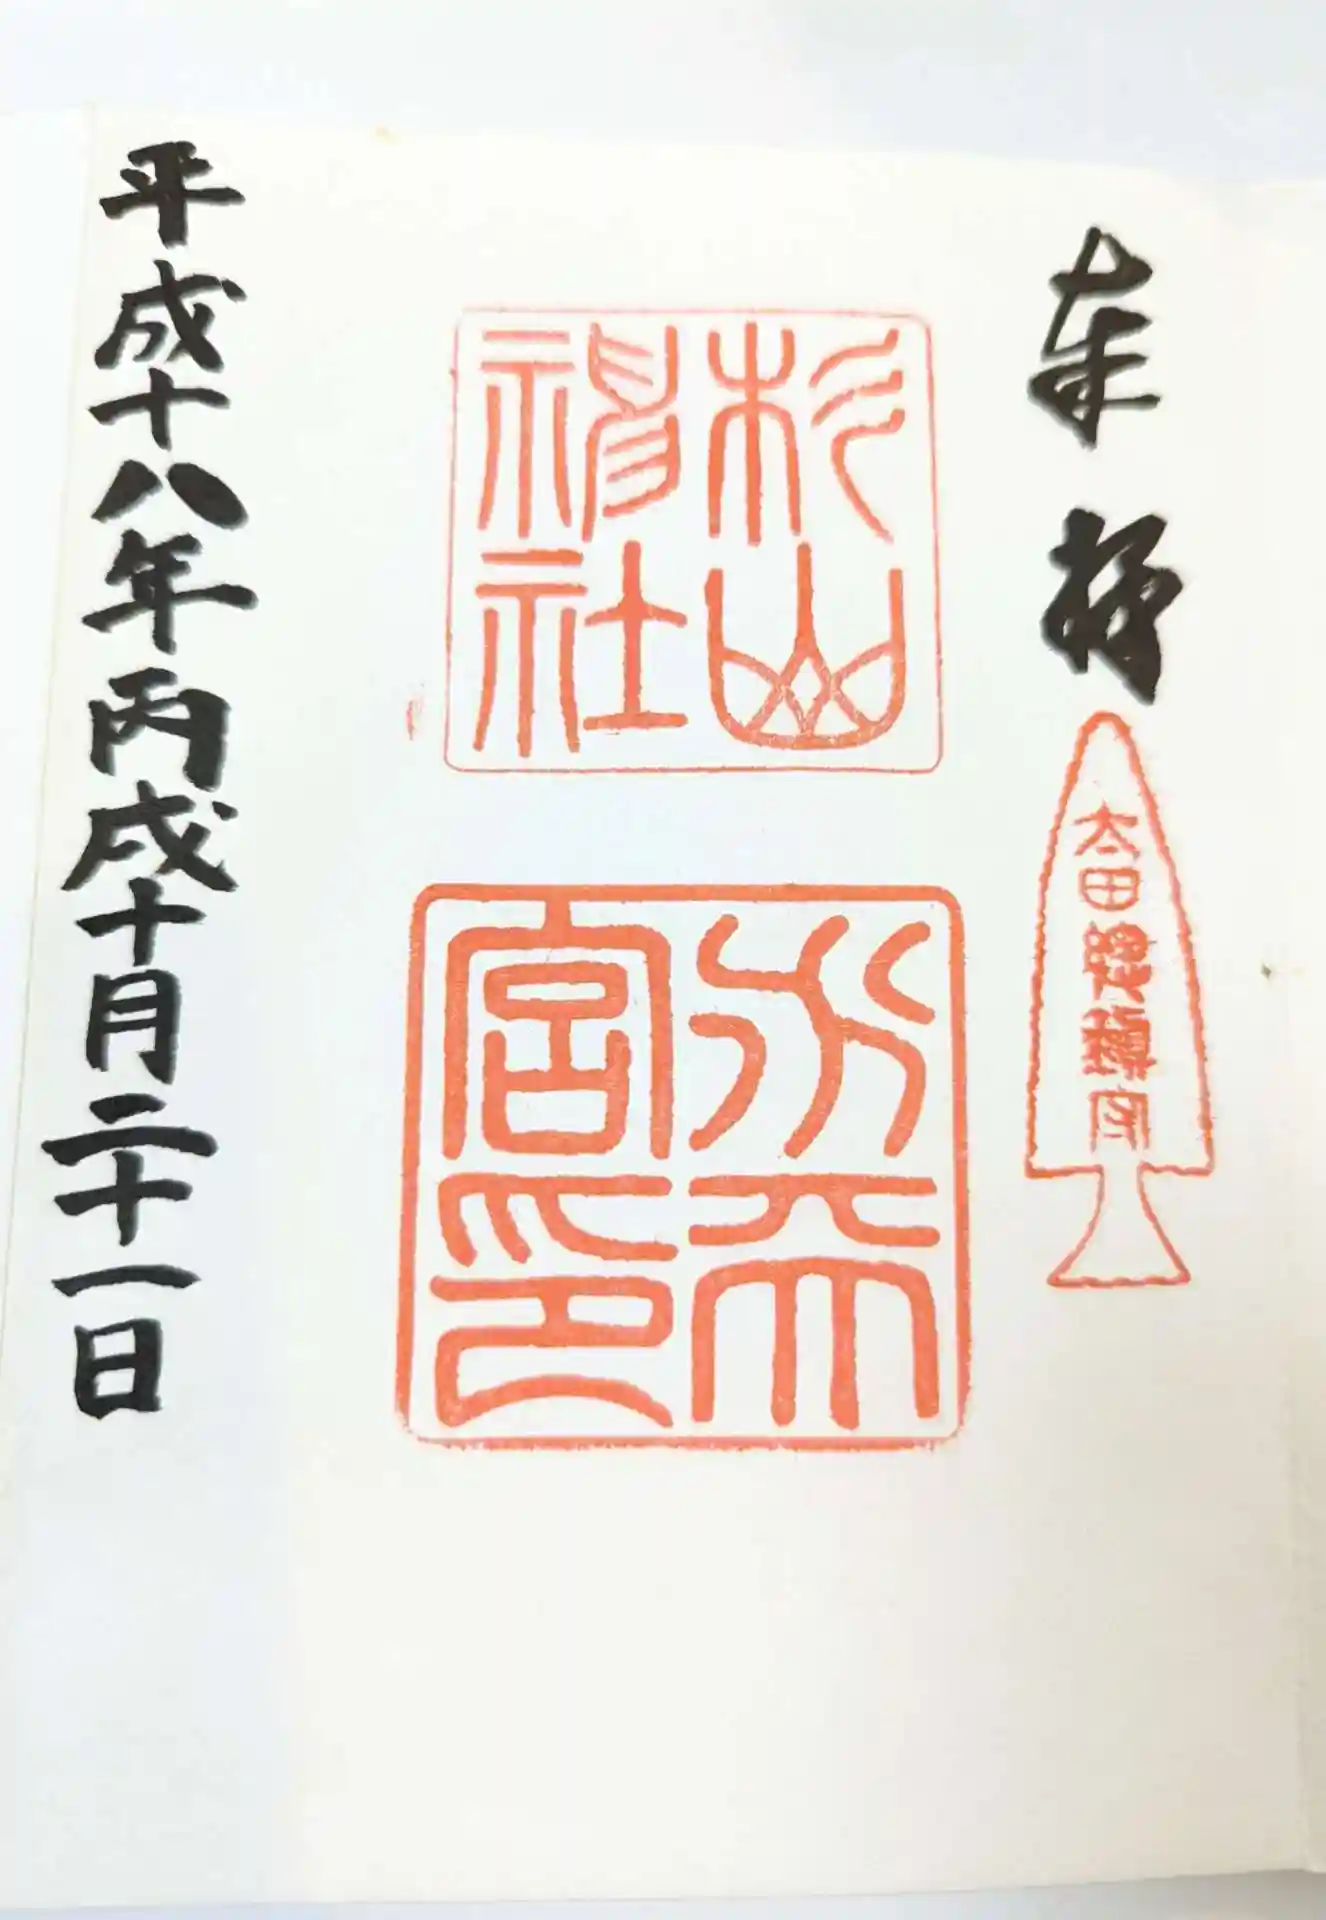 奉拝
太田總鎮守
杉山神社
水天宮印
平成十八年丙戌十月二十一日